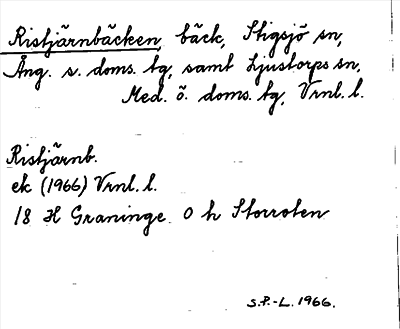 Ristjärnbäcken, bäck, Stigsjö sn,
Ång. s. doms. tg, samt Ljustorps sn,
Med. ö. doms. tg, Vrnl. l.
Ristjärnb.
ek (1966) Vrnl. l.
18 H Graninge O h Storroten
S.P.-L. 1966.